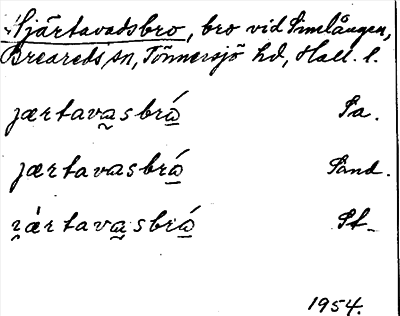 Sjärtavadsbro, bro vid Simlången,
Breareds sn, Tönnersjö hd, Hall. l.
jærtavas̰brá̲ Sa.
jærtavasbrá̲ Sand.
ɀ̤ærtavas̰brá̲ St.
1954.